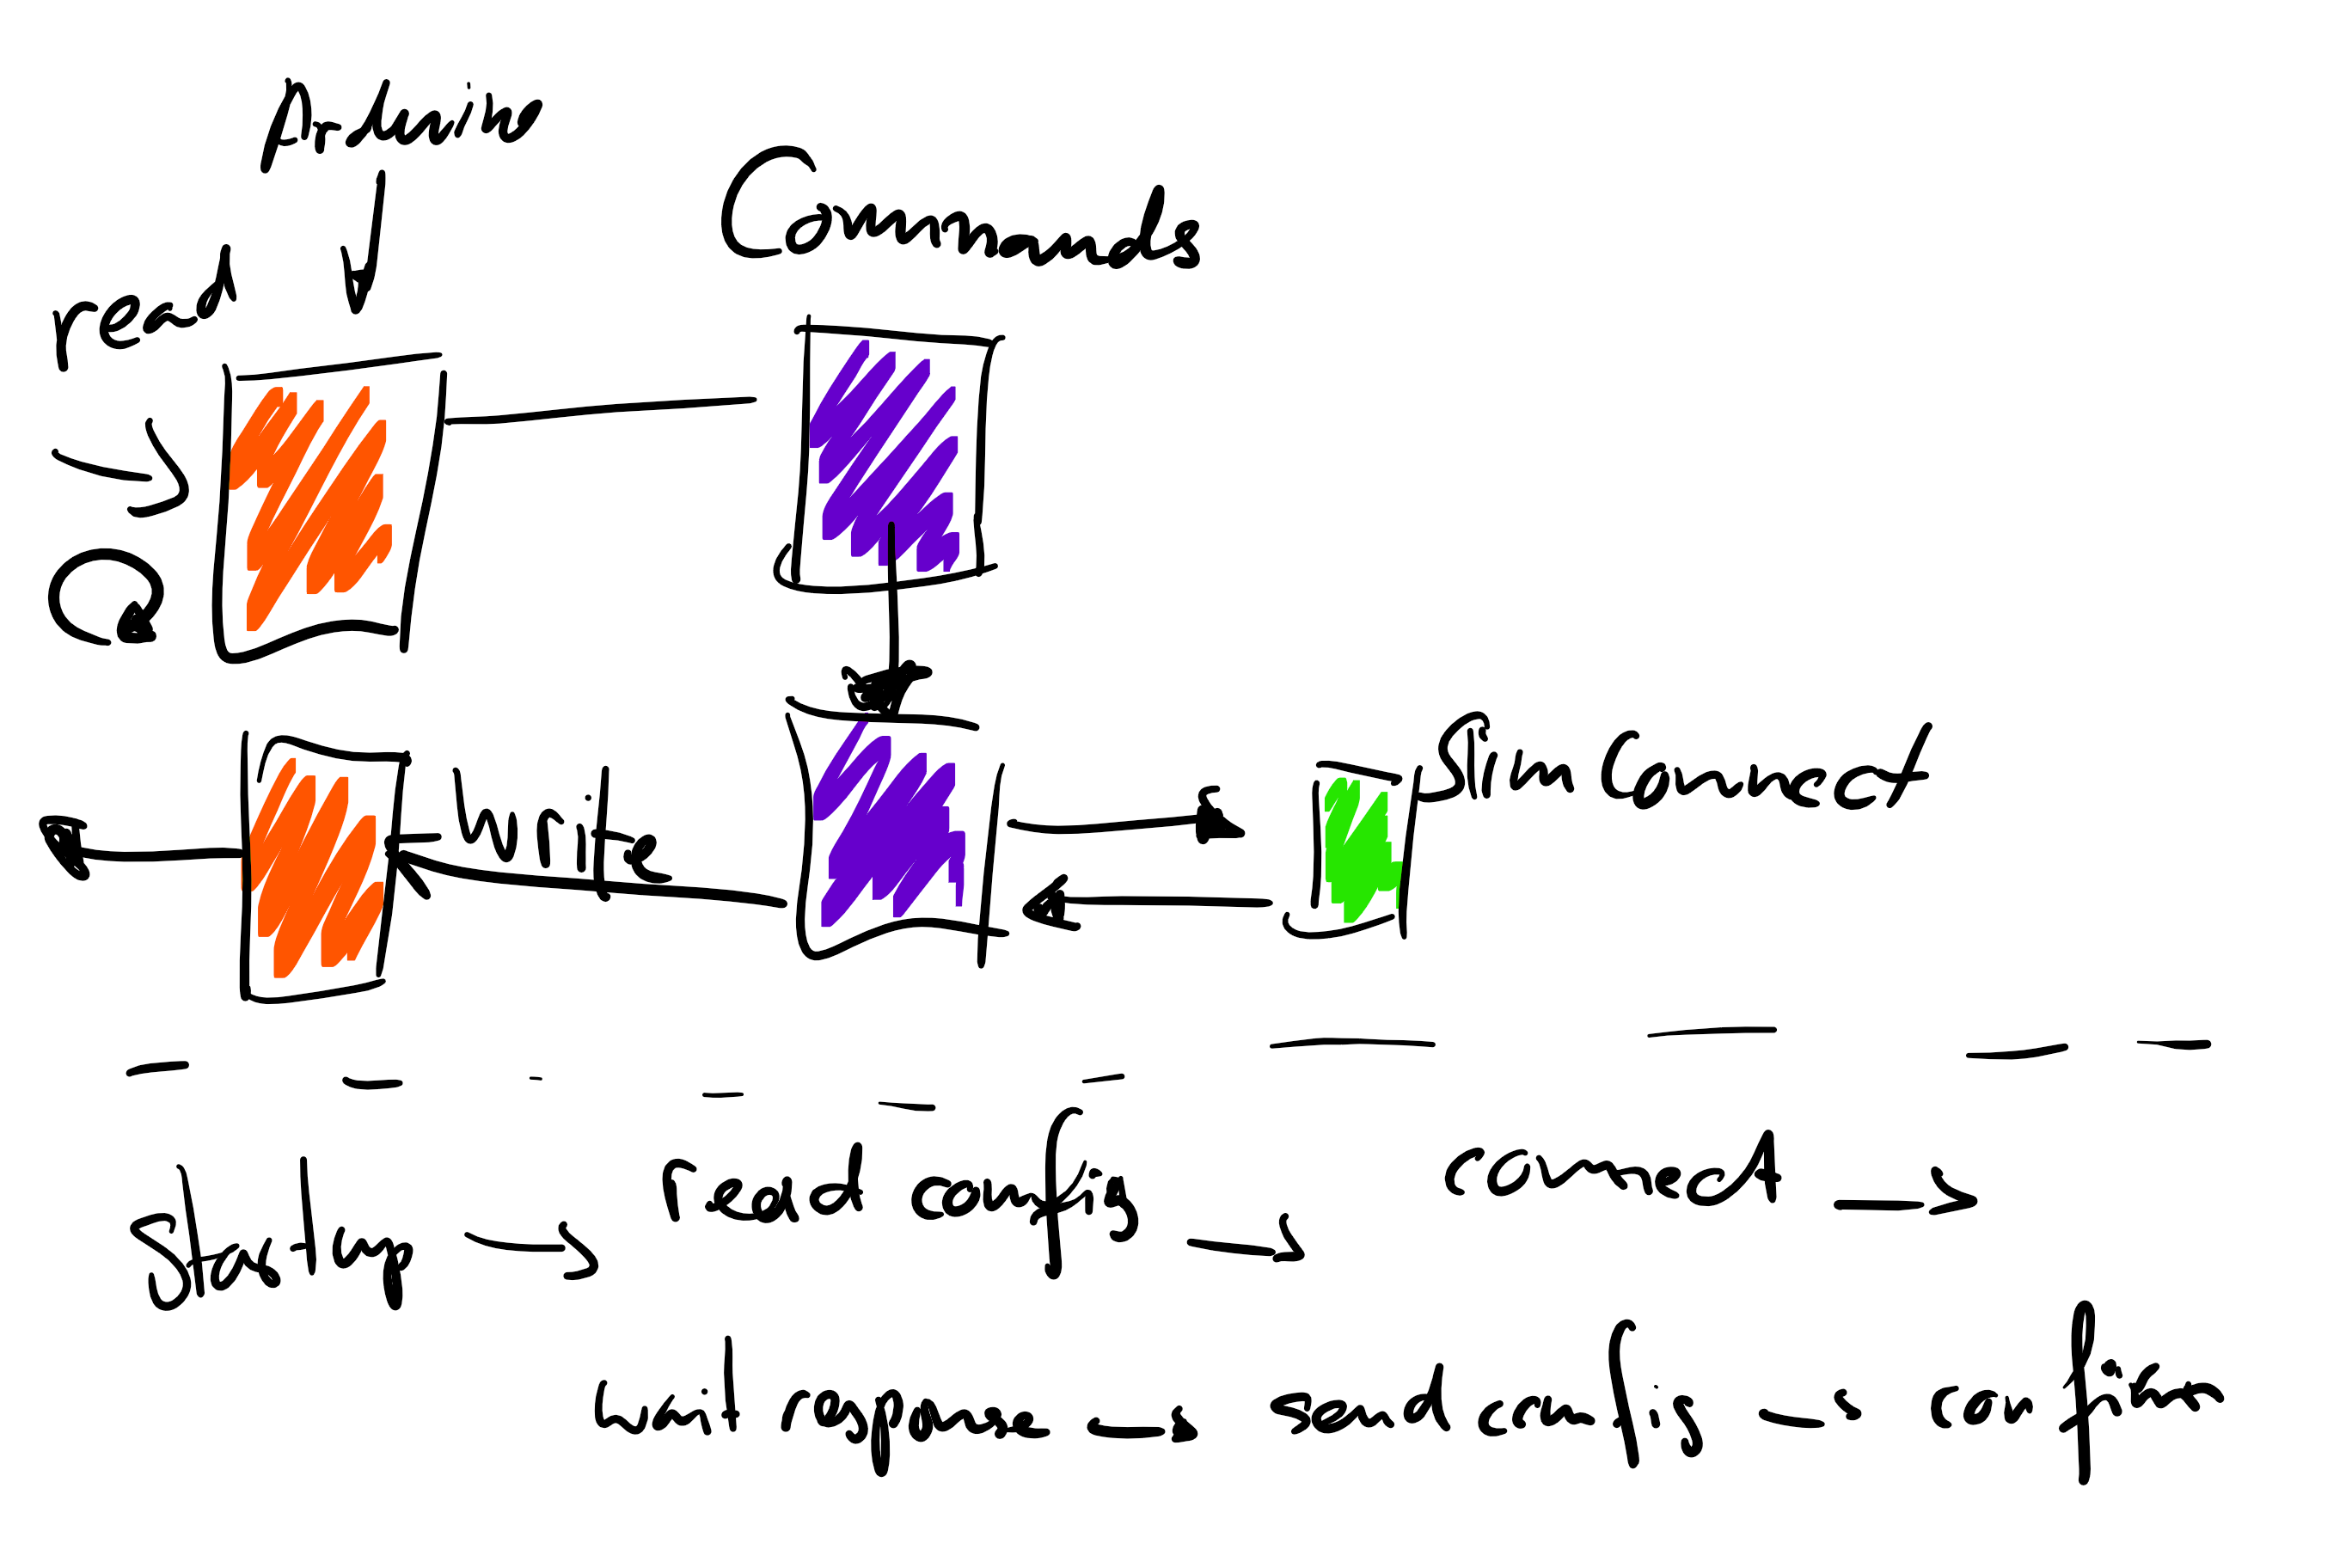 Arduino
Commands
read
Write
Sim Connect
Startup → read config → connect →
wait response → send config → confirm